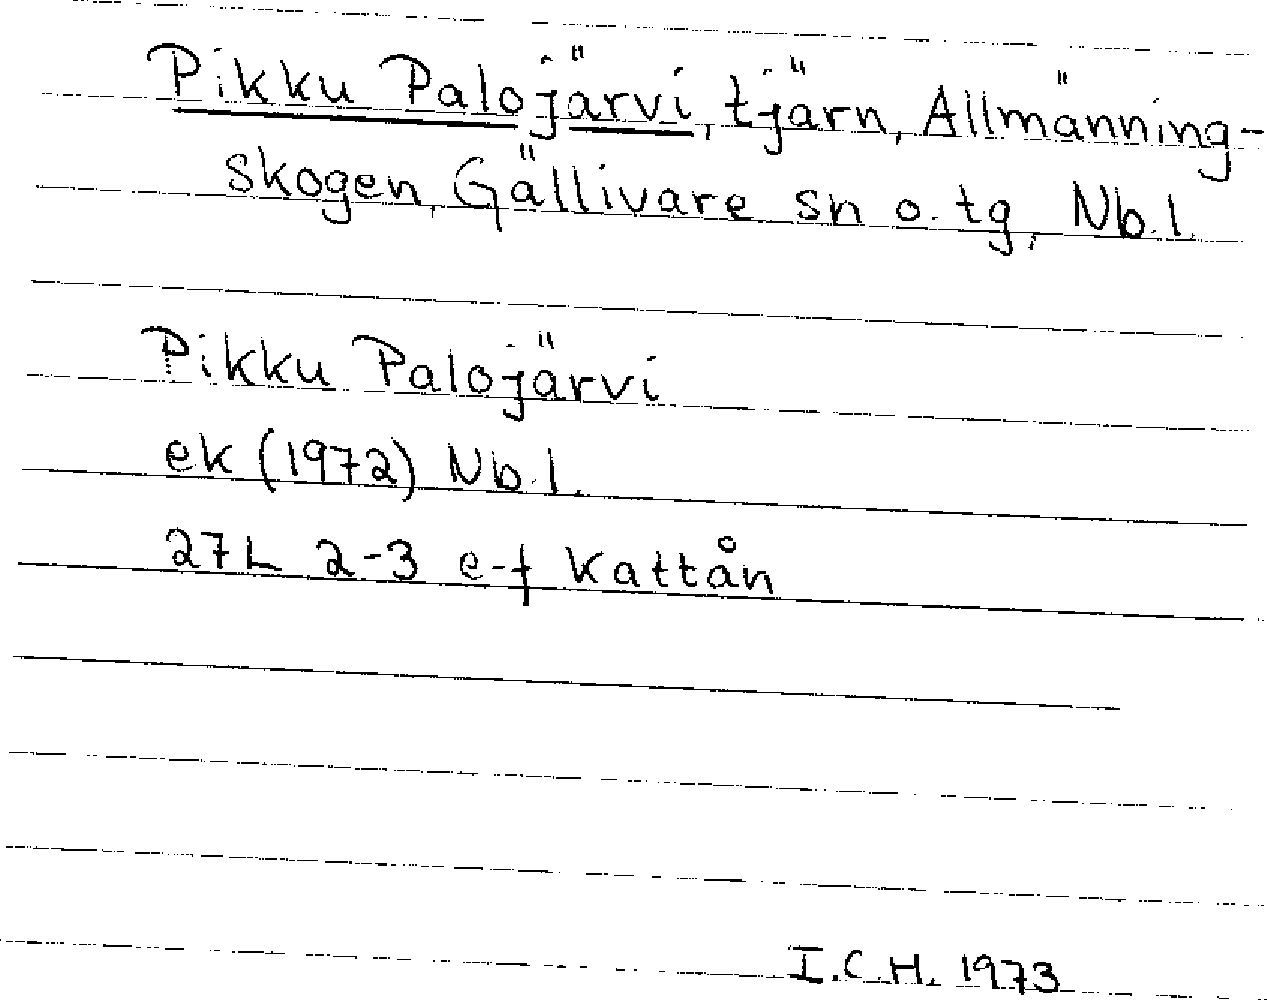 Pikku Palojärvi, tjärn, Allmänning-
skogen, Gällivare sn o. tg, Nb.l.
Pikku Palojärvi
ek (1972) Nb.l.
27L 2-3 e-f Kattån
I.C.H. 1973